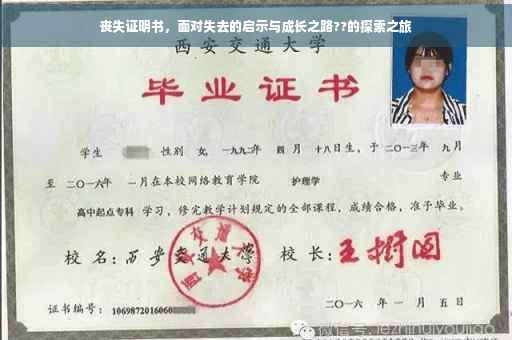 丧失证明书，面对失去的启示与成长之路??的探索之旅
西安交通大学
毕业证书
学生 性别 女，一九九二年 四月 十八日生，于二〇一三年 九月
至 二〇一六年 一月在本校网络教育学院 护理学 专业
高中起点专科 学习，修完教学计划规定的全部课程，成绩合格，准予毕业。
校名：西安交通大学 校长：王树国
西安交通大学
证书编号：1069872016060
二〇一六年 一月 五日
微信号: jiezhihuiyoujiao